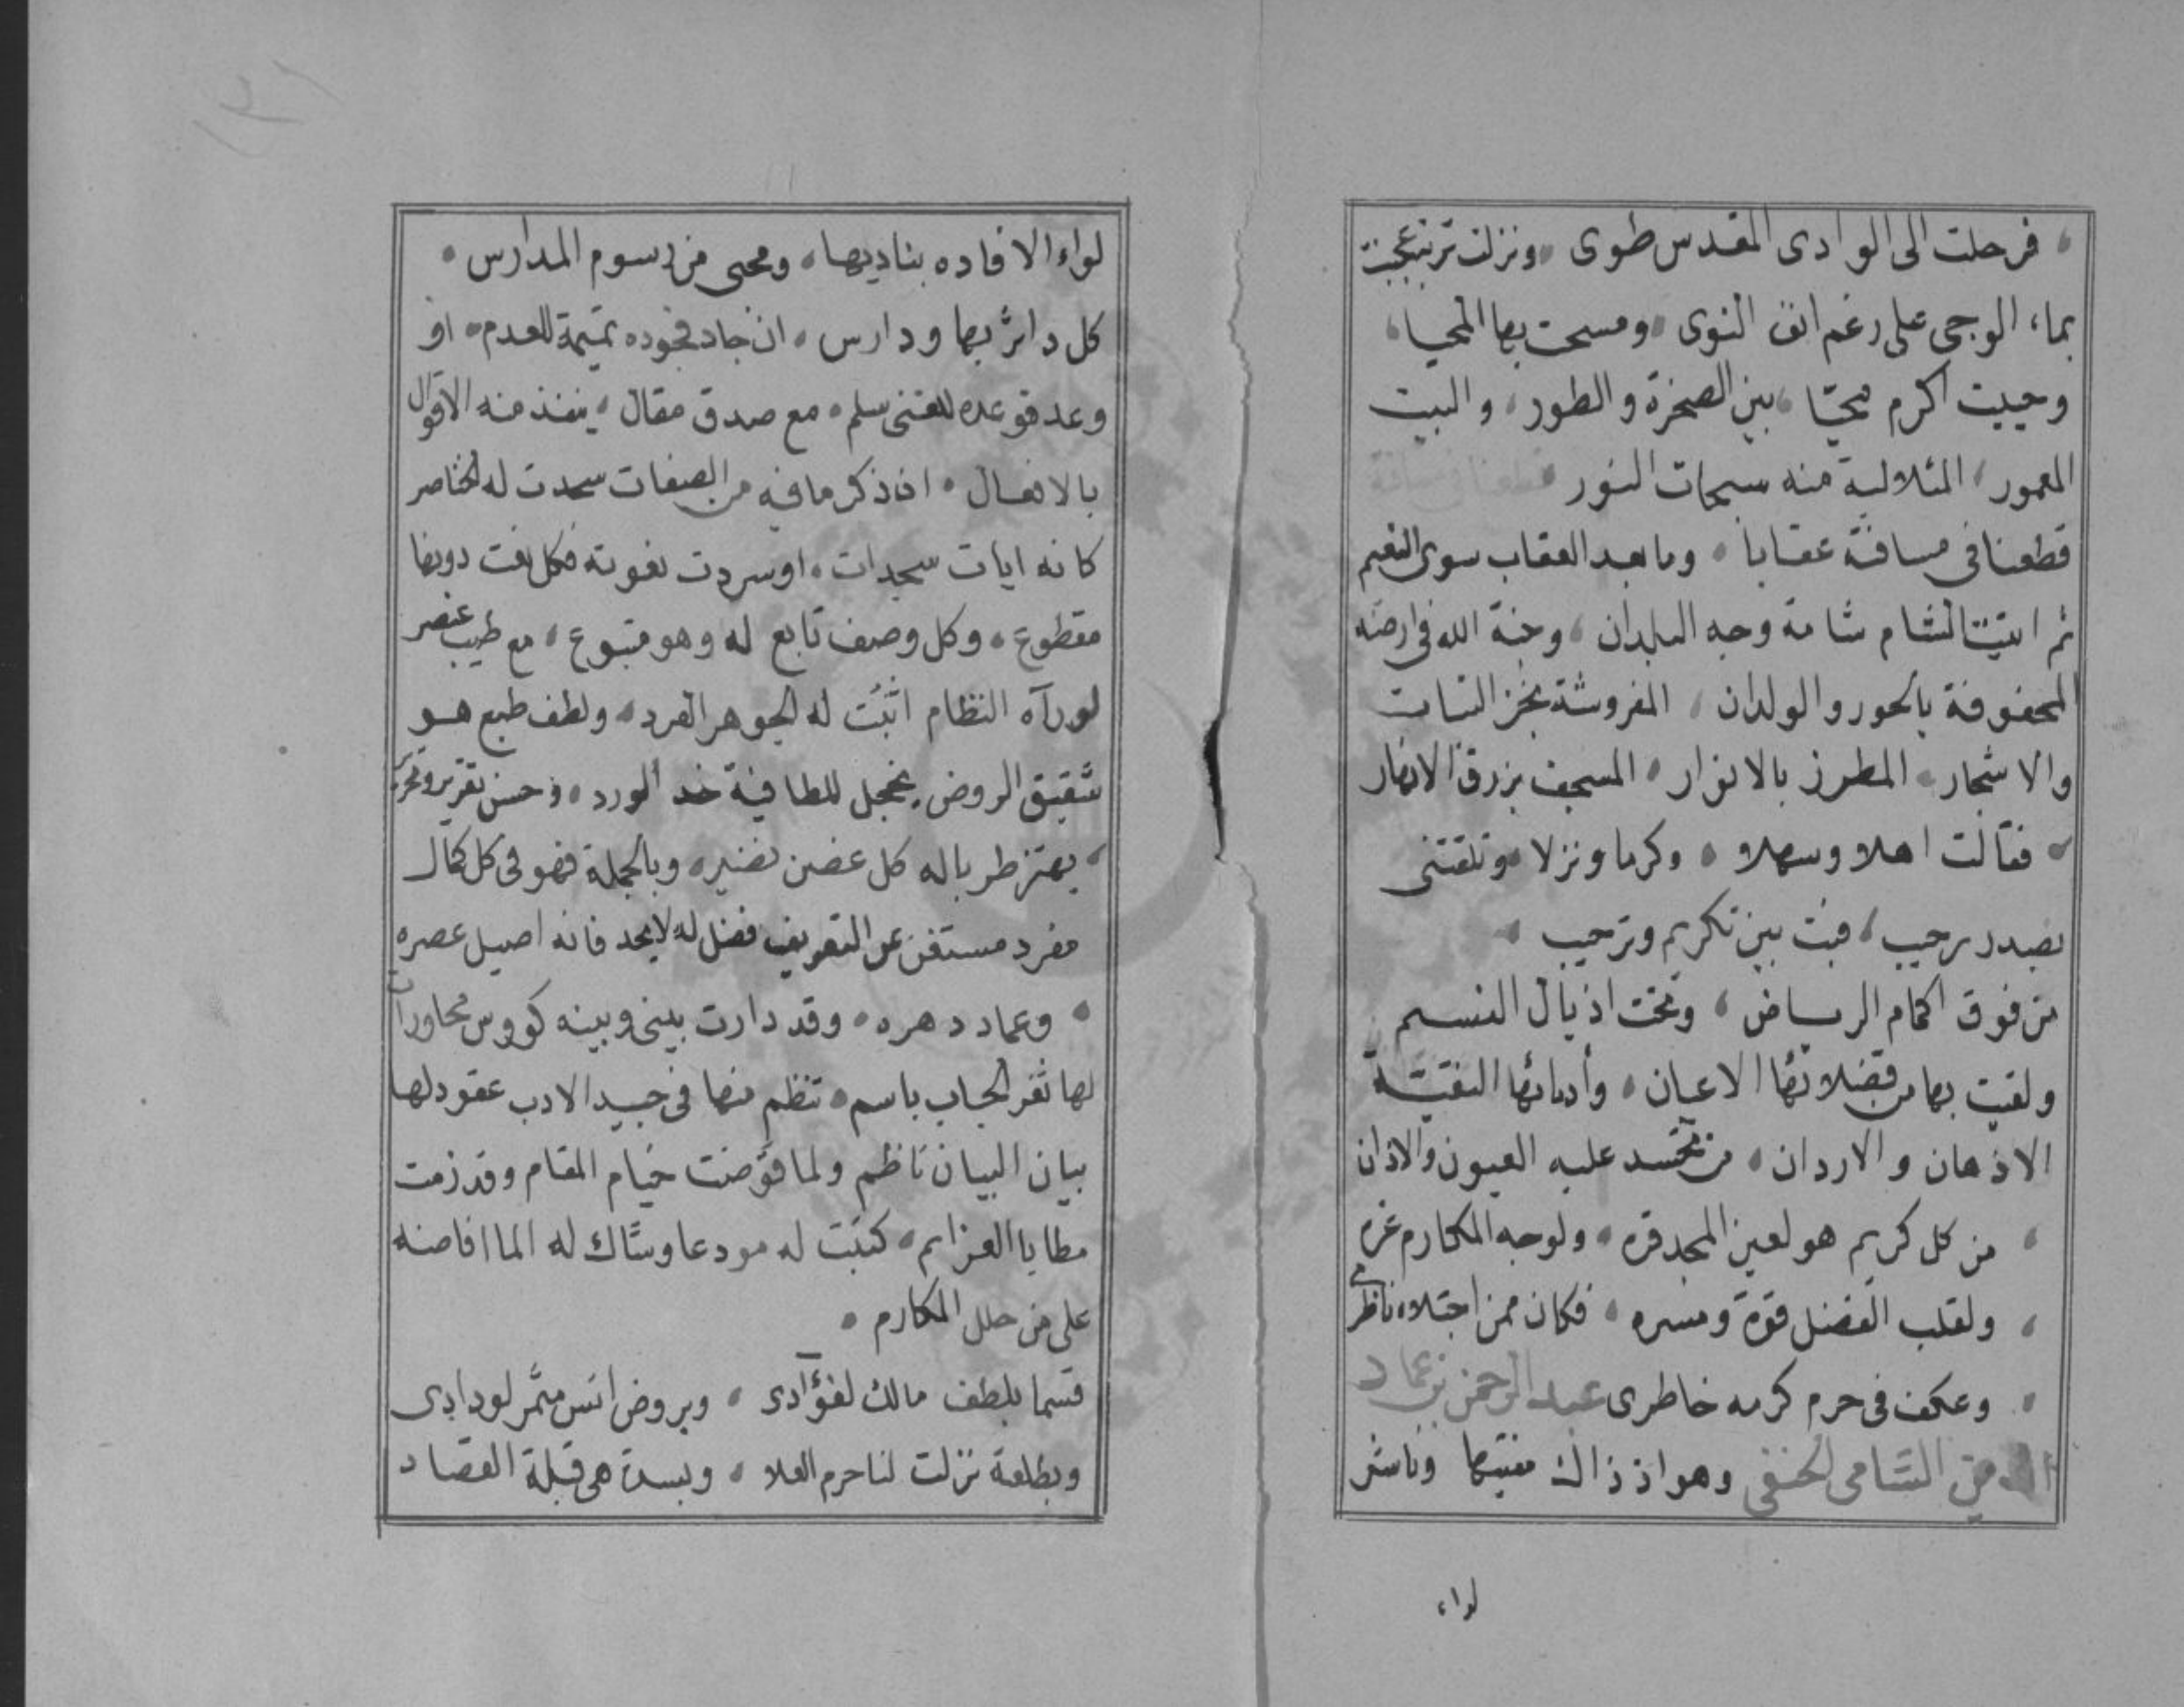 فرحلت الى الوادى المقدس طوى ، ونزلت تربة عجنت
بماء الوحى على رغم انف النوى ، ومسحت بها المحيا ،
وحييت اكرم محيّا ، بين الصخرة والطور ، والبيت
المعمور ، المتلالية منه سبحات النور
قطعنا فى مسافته عقابا ، وما بعد العقاب سوى النعيم
ثم اتيت الشام شامة وجه البلدان ، وجنة الله فى ارضه
المحفوفة بالحور والولدان ، المفروشة بخز النبات
والاشجار ، المطرز بالانوار ، المسجف بزرق الانهار
، فقالت اهلا وسهلا ، وكرما ونزلا ، وتلقتنى
بصدر رحيب ، فبت بين تكريم وترحيب ،
من فوق اكمام الرياض ، وتحت اذيال النسيم
ولقيت بها من فضلائها الاعيان ، وأدبائها النقيّة
الاذهان والاردان ، من تحسد عليه العيون والاذان
، من كل كريم هو لعين المجد قره ، ولوجه المكارم غره
، ولقلب الفضل قوة ومسره ، فكان ممن اجتلاه ناظرى
، وعكف فى حرم كرمه خاطرى عبد الرحمن بن عماد
الشامى الحنفى وهو اذ ذاك مفتيها وناشر
لواء
لواء الافاده بناديها ، ومحيى من رسوم المدارس ،
كل داثر بها ودارس ، ان جاد فجوده تميمة للعدم ، او
وعد فوعده للغنى سلم ، مع صدق مقال ، ينفذ منه الاقوال
بالافعال ، اذا ذكر ما فيه من الصفات سجدت له الخناصر
كانه ايات سجدات ، او سردت نعوته فكل نعت دونها
مقطوع ، وكل وصف تابع له وهو متبوع ، مع طيب عنصر
لو رآه النظام اثبت له الجوهر الفرد ، ولطف طبع هو
شقيق الروض يخجل للطافية خد الورد ، وحسن تقرير وتحرير
، يهتز طربا له كل غصن نضير ، وبالجملة فهو فى كل كمال
مفرد مستغن عن التعريف فضل له لا يحد فانه اصيل عصره
، وعماد دهره ، وقد دارت بينى وبينه كووس محاورات
لها ثغر الحباب باسم ، تنظم منها فى جيد الادب عقود لها
بيان البيان ناظم ولما قوّضت خيام المقام وقد زمت
مطايا العزايم ، كتبت له مودعا وشاك له الما افاضه
على من حلل المكارم ،
قسما بلطف مالك لفؤآدى ، وبروض انس مثمر لودادى
وبطلعة نزلت لنا حرم العلا ، وبسدة هى قبلة القصاد